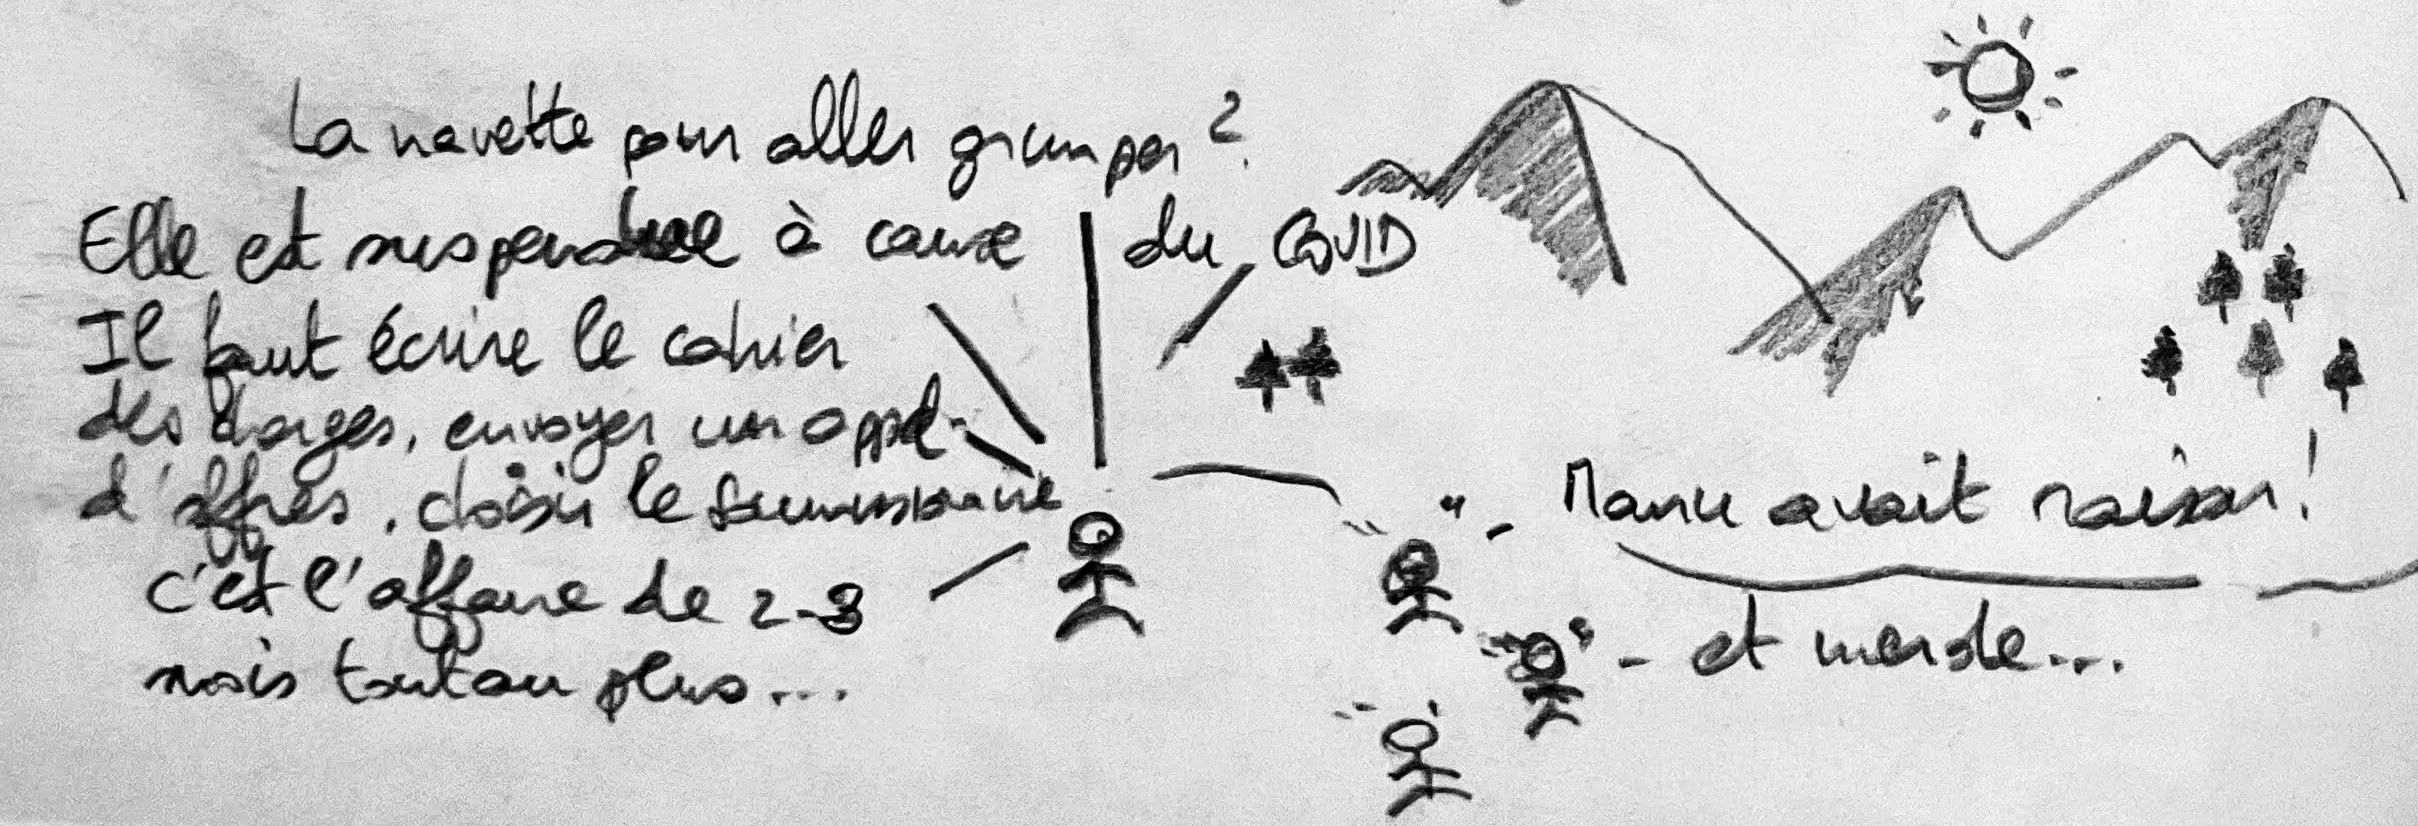 La navette pour aller grimper ?
Elle est suspendue à cause du COVID
Il faut écrire le cahier
des charges, envoyer un appel
d'offres, choisir le soumissionnaire
c'est l'affaire de 2-3
mois tout au plus...
- Manu avait raison !
- et merde...